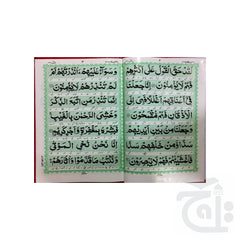 لَقَدْ حَقَّ الْقَوْلُ عَلٰۤى اَكْثَرِهِمْ
فَهُمْ لَا يُؤْمِنُوْنَ اِنَّا جَعَلْنَا
فِيْۤ اَعْنَاقِهِمْ اَغْلٰلًا فَهِيَ اِلَى
الْاَذْقَانِ فَهُمْ مُّقْمَحُوْنَ وَ
جَعَلْنَا مِنْۢ بَيْنِ اَيْدِيْهِمْ
سَدًّا وَّمِنْ خَلْفِهِمْ سَدًّا
فَاَغْشَيْنٰهُمْ فَهُمْ لَا يُبْصِرُوْنَ
وَسَوَآءٌ عَلَيْهِمْ ءَاَنْذَرْتَهُمْ اَمْ
لَمْ تُنْذِرْهُمْ لَا يُؤْمِنُوْنَ
اِنَّمَا تُنْذِرُ مَنِ اتَّبَعَ الذِّكْرَ
وَخَشِيَ الرَّحْمٰنَ بِالْغَيْبِ
فَبَشِّرْهُ بِمَغْفِرَةٍ وَّاَجْرٍ كَرِيْمٍ
اِنَّا نَحْنُ نُحْيِ الْمَوْتٰى
وَنَكْتُبُ مَا قَدَّمُوْا وَاٰثَارَهُمْ